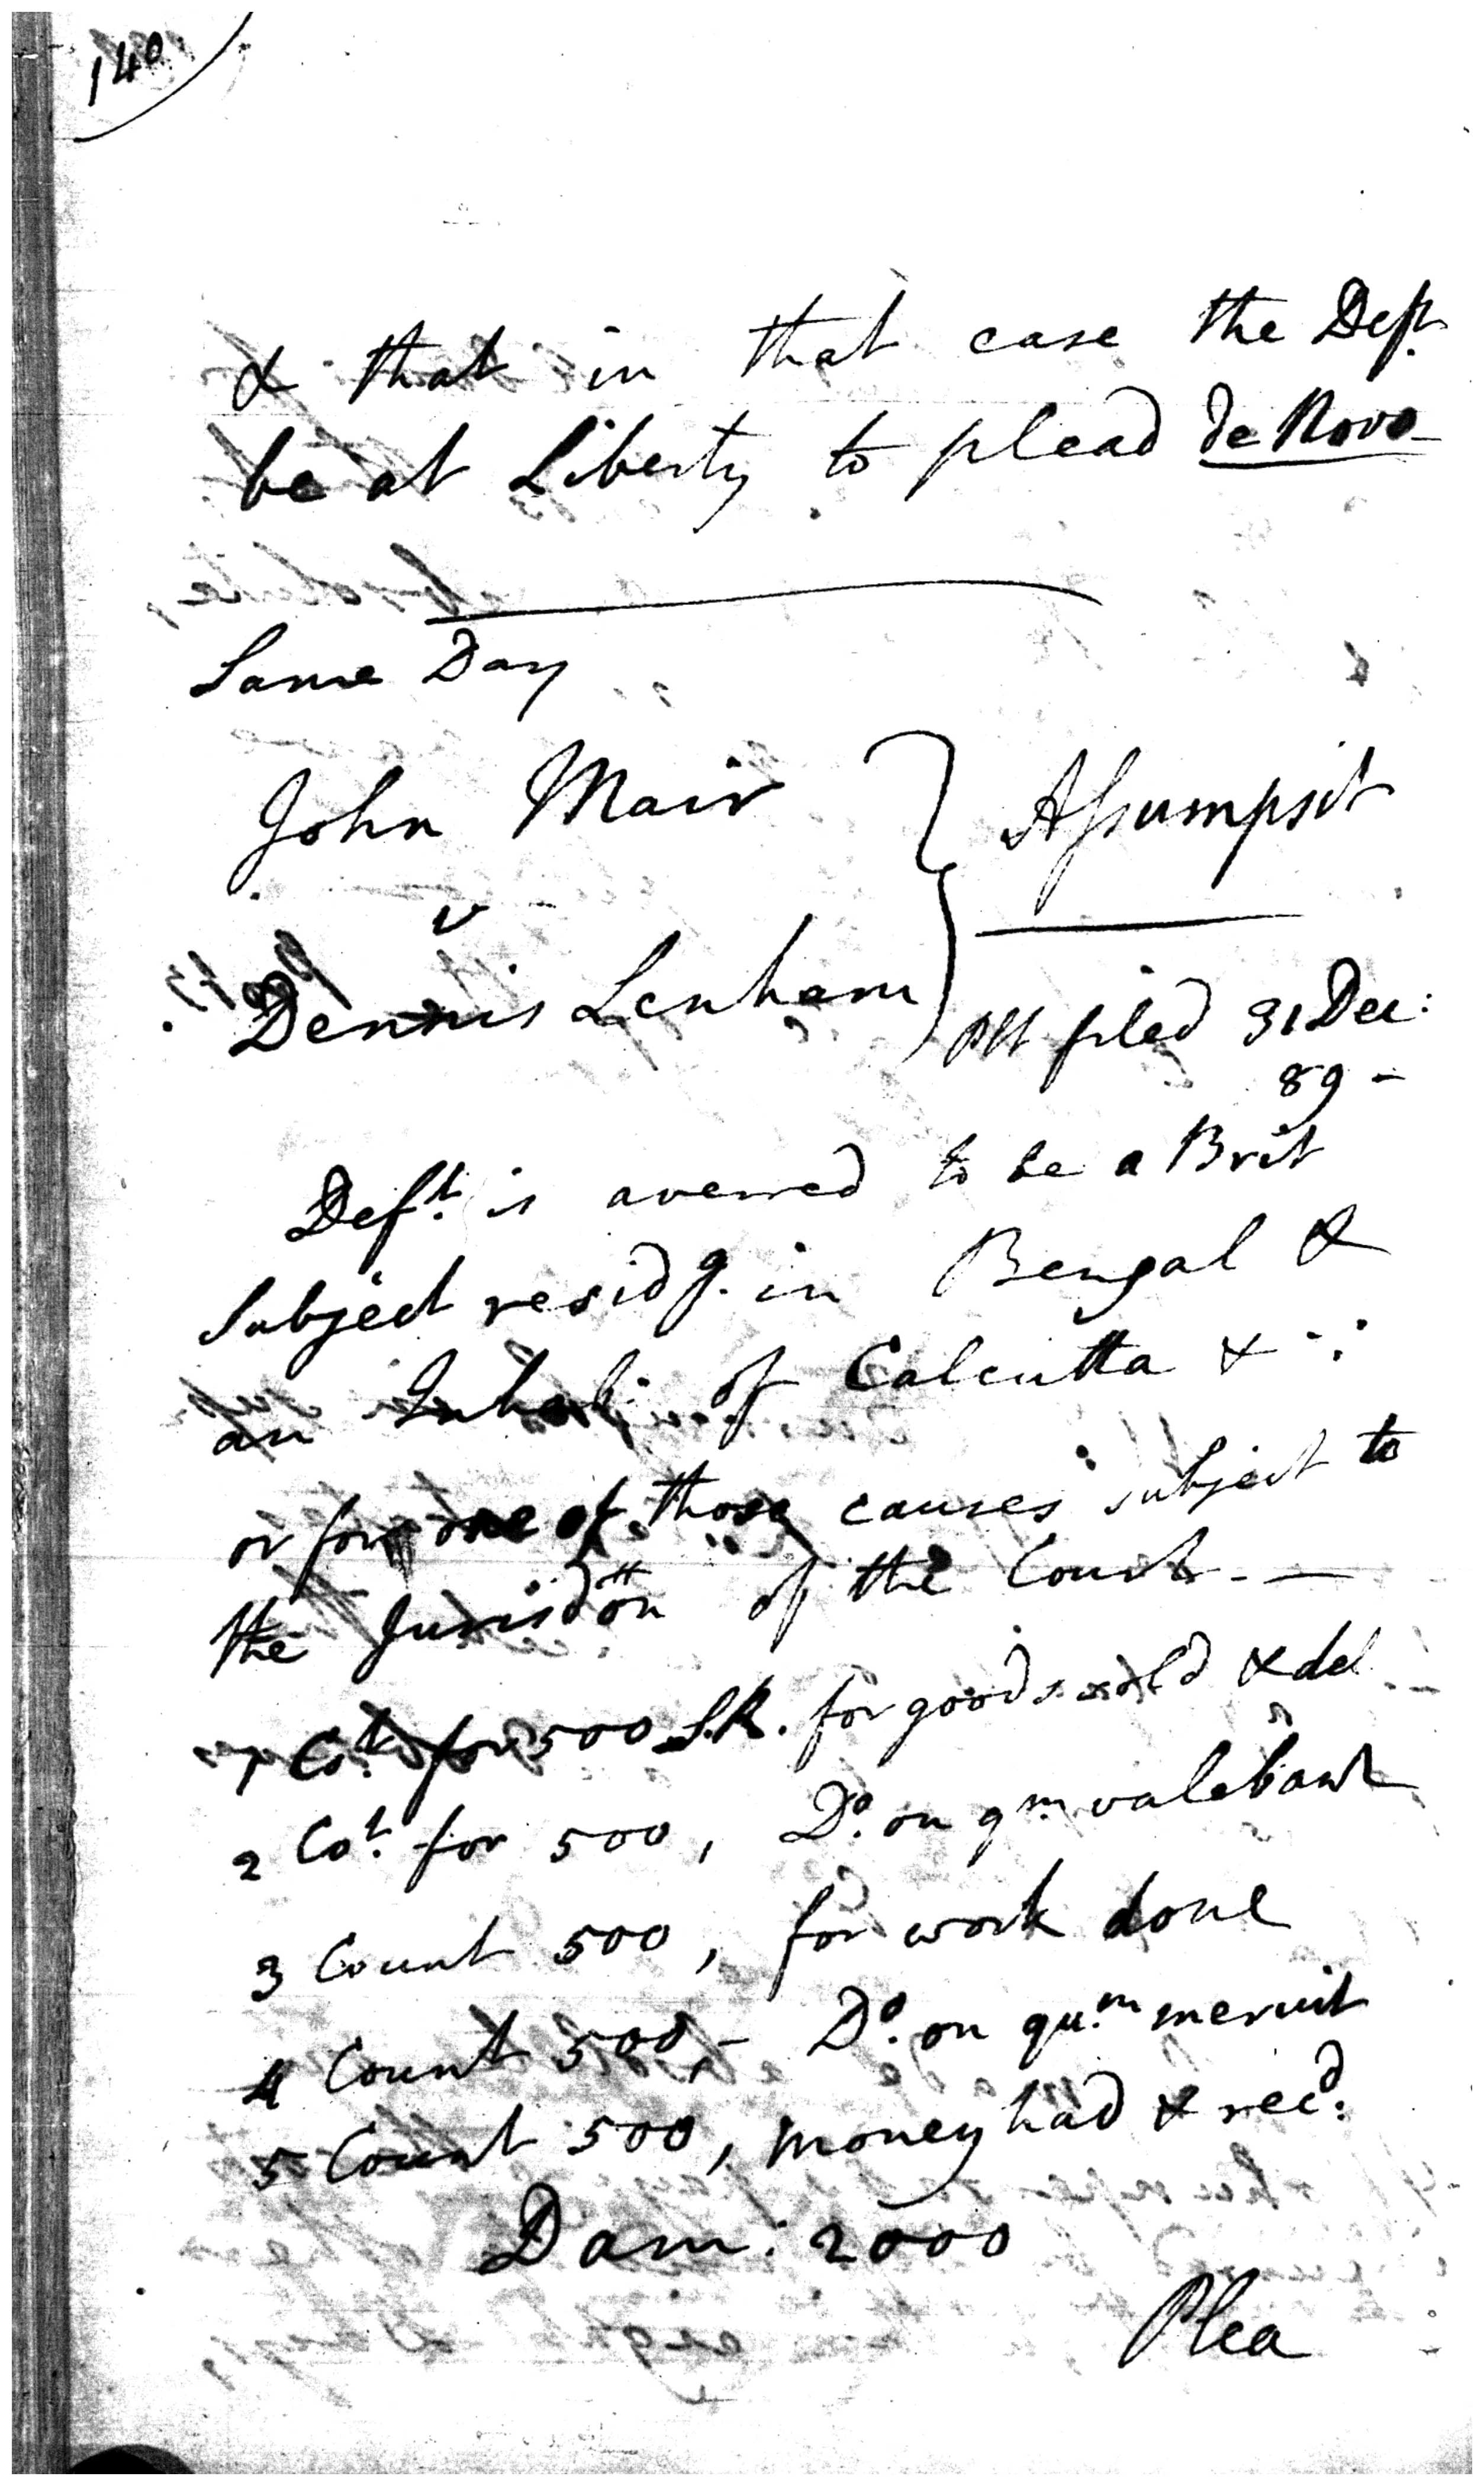 140
& that in that case the Deft.
be at Liberty to plead de Novo
Same Day
John Mair
Assumpsit
v
Dennis Lenham
Plt filed 31 Dec:
89 -
Deft. is averred to be a Brit
Subject residg. in Bengal &
an Inhab: of Calcutta &
or for one of those causes subject to
the Jurisdon of the Court. —
1 Cot. for 500 S.R. for goods sold & deld
2 Cot. for 500, Do. on qm valebant
3 Count 500, for work done
4 Count 500 - Do. on qu.m meruit
5 Count 500, money had & recd:
Dam: 2000
Plea